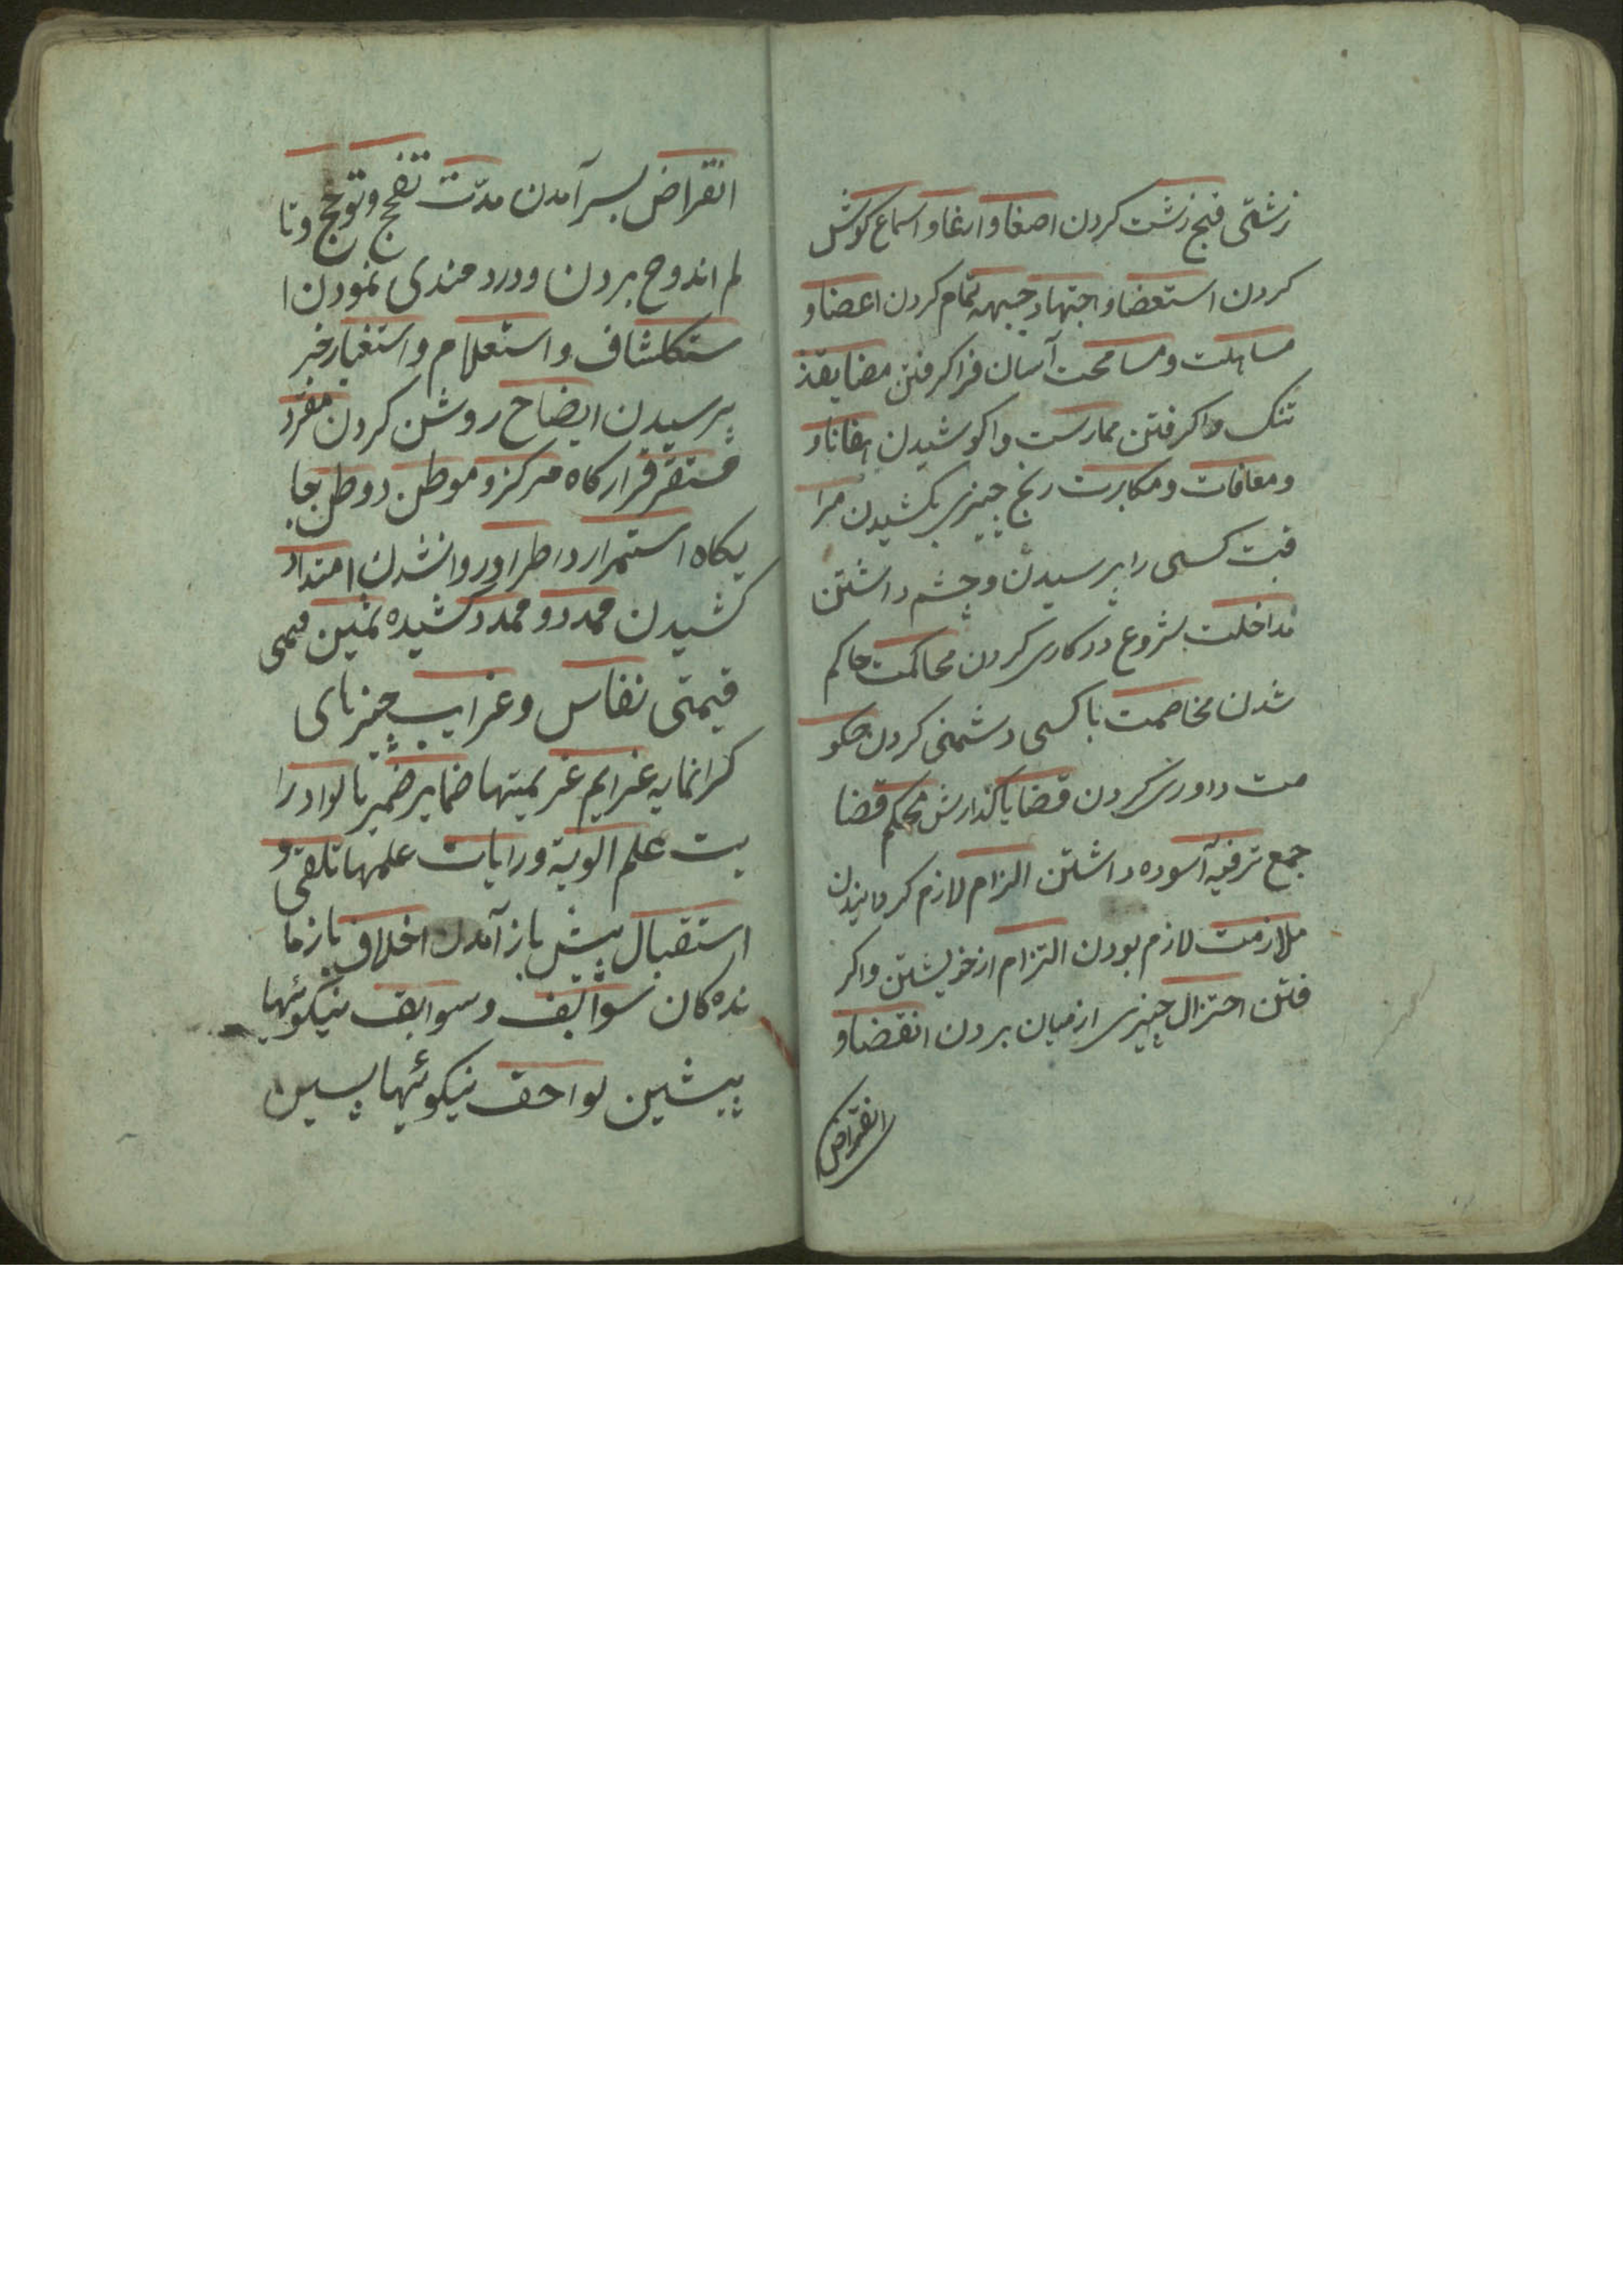 زشتی قبح زشت کردن اصغا و ارغا و اسماع کوش
کردن استعضا و اجتهاد جبهه تمام کردن اعضا و
مساهلت و مسامحت آسان فرا کرفتن مضایقذ
تنک وا کرفتن ممارست وا کوشیدن
و معافات و مکابرت رنج چیزی بکشیدن مرا
قبت کسی را پرسیدن و چشم داشتن
مداخلت بشروع در کاری کردن محاکمت حاکم
شدن مخاصمت با کسی دشمنی کردن حکو
مت داوری کردن قضایا کذارش محکم قضا
جمع ترفیه آسوده داشتن الزام لازم کردانیدن
ملازمت لازم بودن التزام از خویشتن واکر
فتن احتزال چیزی از میان بردن انقضا و
انقراض
انقراض بسر آمدن مدّت تفجّع و توجّع و تا
لم اندوح بردن و درد مندی نمودن ا
ستکشاف و استعلام و استغبار خبر
پرسیدن ایضاح روشن کردن مقرد
مستقر قرار کاه مرکز و موطن دوطن بجا
یکاه استمرار داطراد روانشدن امتداد
کشیدن ممدود و ممدد کشیده ثمین قیمی
قیمتی نفاس و غرایب چیزهای
کرانمایه عزایم عزیمتها ضمایر ضمیرها لوادرا
یت علم الویة و رایات علمها تلقی و
استقبال پیش باز آمدن اخلاف بازما
نده کان سوالف و سوابق نیکوئیها
پیشین لواحق نیکوئیها پسین